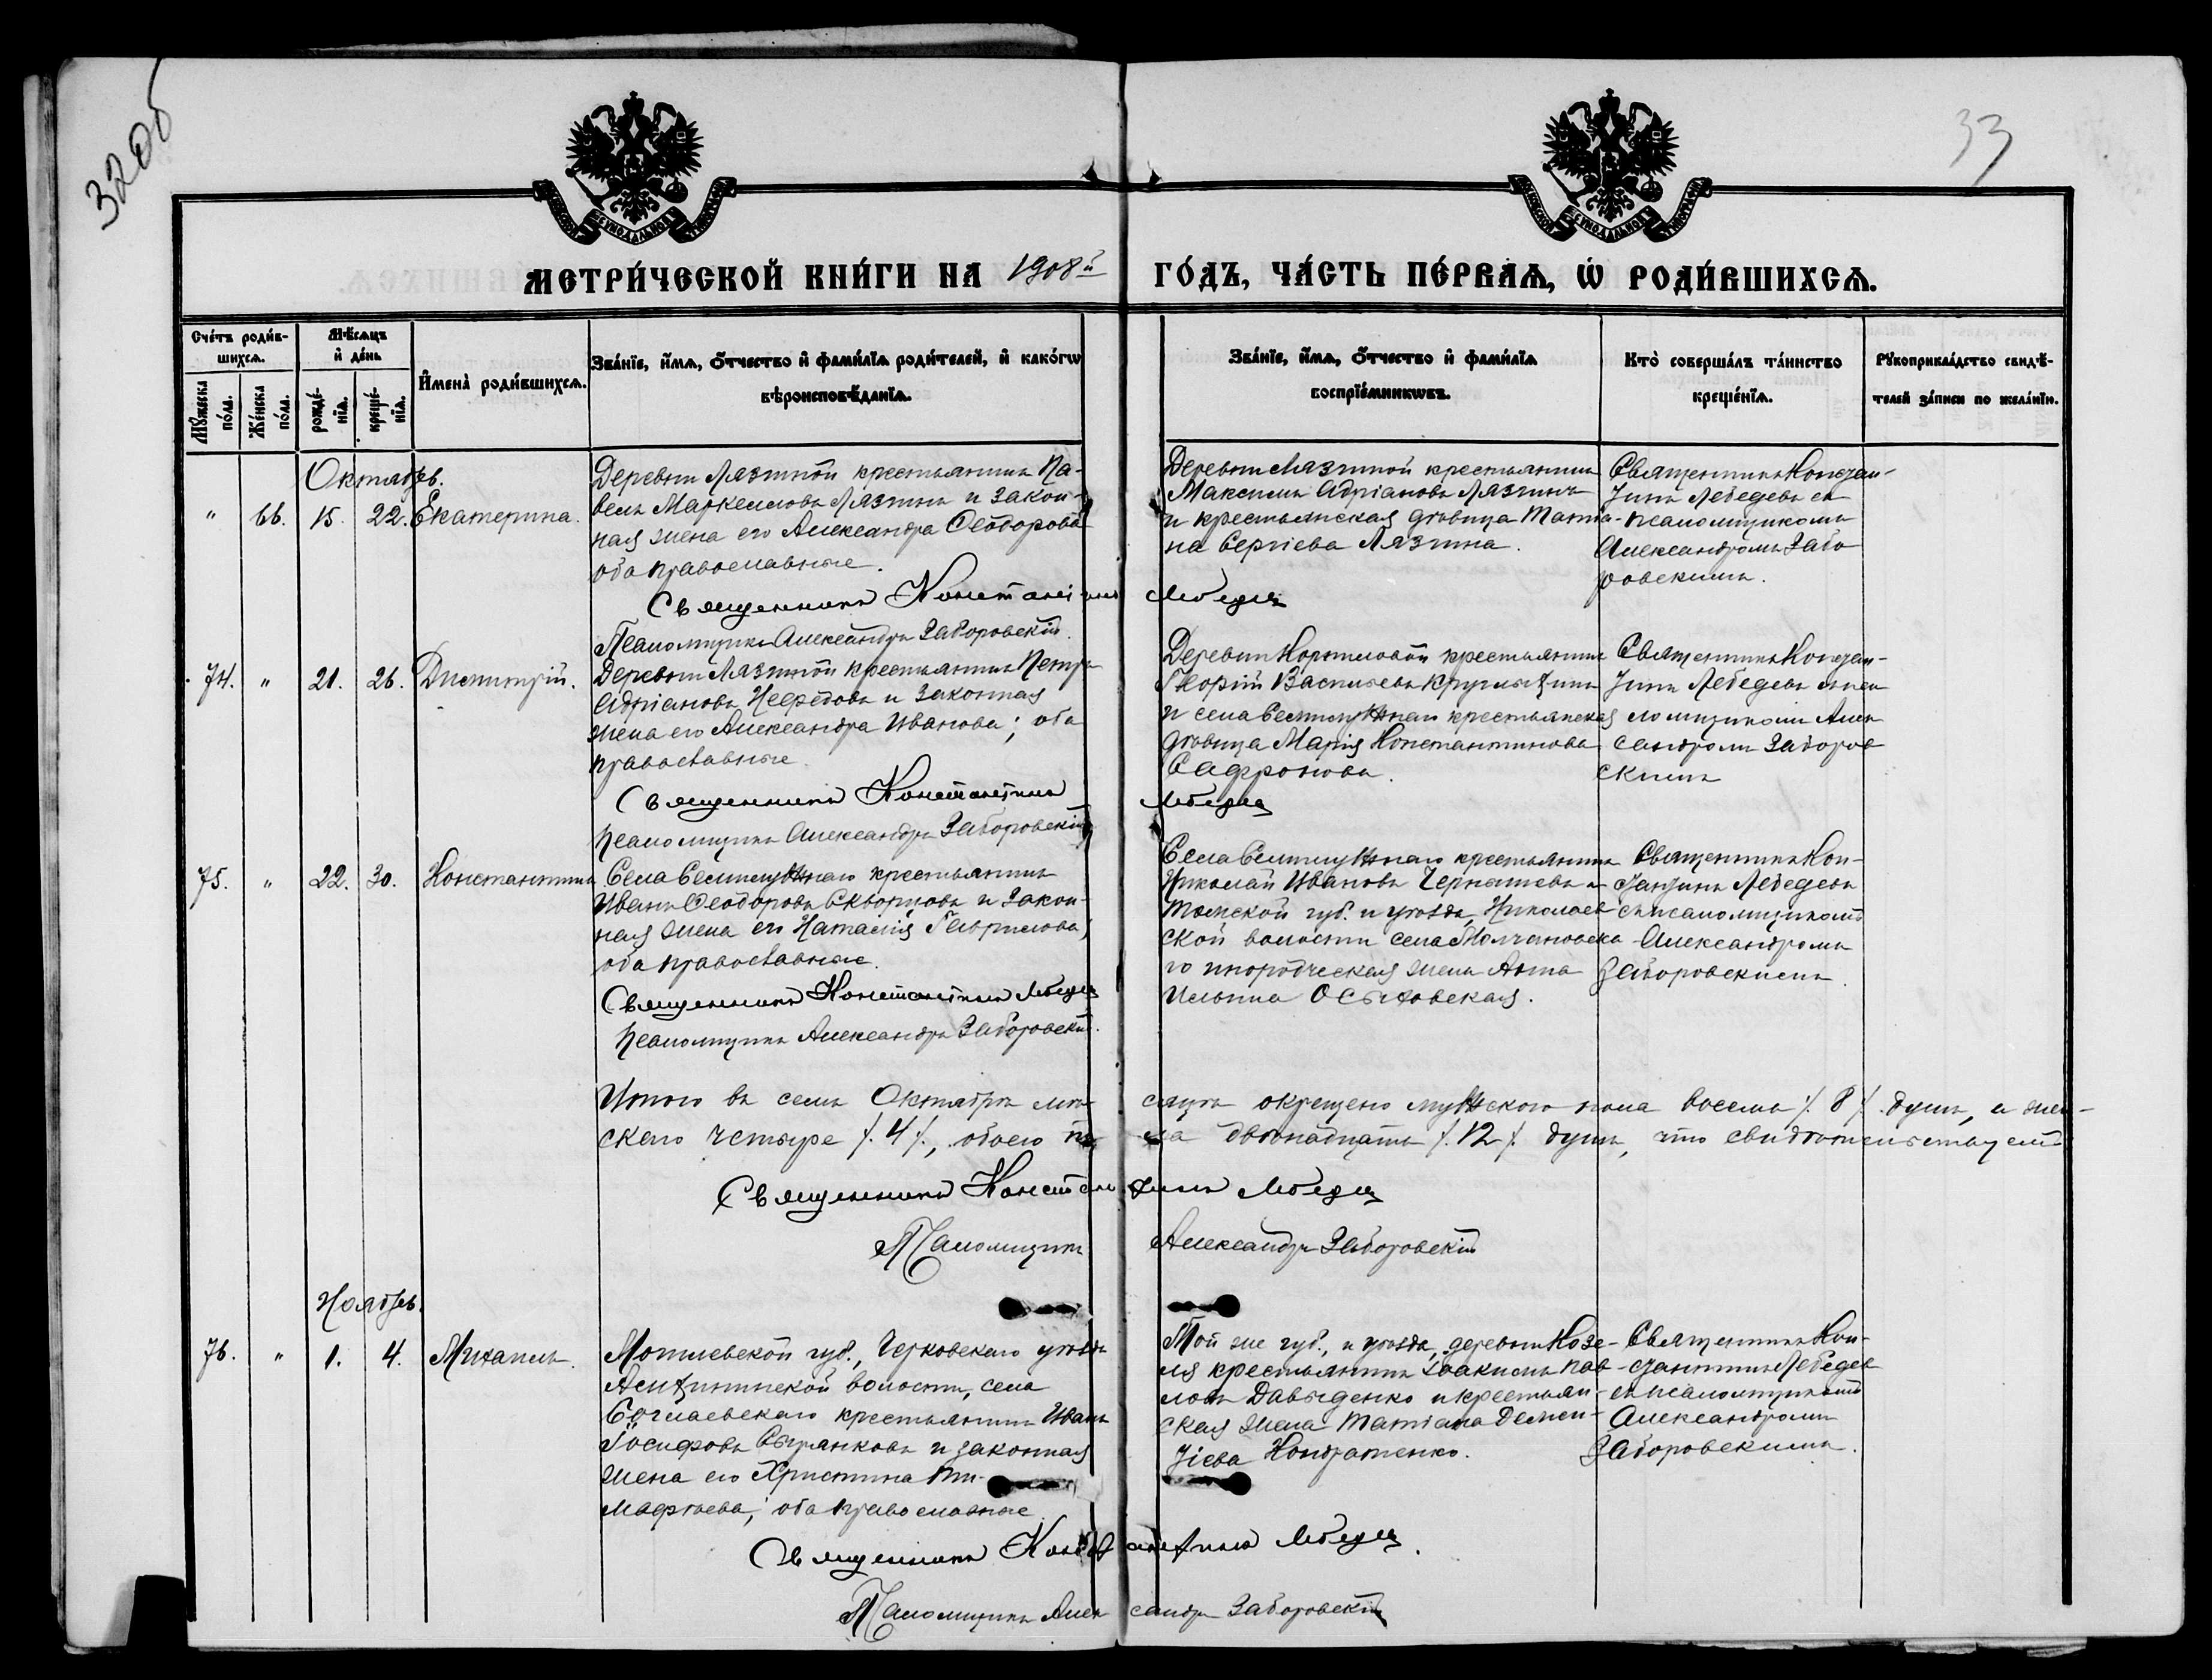 32об
33
МЕТРИ́ЧЕСКОЙ КНИ́ГИ НА 1908й ГО́ДЪ, ЧА́СТЬ ПЕ́РВАѦ, Ѡ РОДИ́ВШИХСѦ.
Сче́тъ роди́в-
шихсѧ.
Мꙋ́жеска по́ла.
Же́нска по́ла.
Мѣ́сѧцъ
и҆ де́нь
рожде́-
нїѧ.
креще́-
нїѧ.
И҆мена̀ роди́вшихсѧ.
Зва́нїе, и҆́мѧ, ѻ҆́тчество и҆ фами́лїѧ роди́телей, и҆ како́гѡ
вѣроисповѣ́данїѧ.
Зва́нїе, и҆́мѧ, ѻ҆́тчество и҆ фами́лїѧ
воспрїе́мникѡвъ.
Кто̀ соверша́лъ та́инство
креще́нїѧ.
Рꙋкоприкла́дство свидѣ́-
телей за́писи по жела́нїю.
Октябрь.
" 66. 15. 22. Екатерина.
Деревни Лязгиной крестьянинъ Па-
велъ Маркелловъ Лязгинъ и закон-
ная жена его Александра Ѳеодорова
оба православные.
Священникъ Константинъ Лебедевъ
Псаломщикъ Александръ Заборовскій.
Деревни Лязгиной крестьянинъ
Максимъ Адріановъ Лязгинъ
и крестьянская дѣвица Татіа-
на Сергіева Лязгина.
Священникъ Констан-
тинъ Лебедевъ съ
псаломщикомъ
Александромъ Забо
ровскимъ.
74. " 21. 26. Димитрій.
Деревни Лязгиной крестьянинъ Петръ
Адріановъ Нефедовъ и законная
жена его Александра Иванова; оба
православные.
Священникъ Константинъ Лебедевъ
Псаломщикъ Александръ Заборовскій
Деревни Корниловой крестьянинъ
Георгій Васильевъ Круглыхинъ
и села Семилужнаго крестьянская
дѣвица Марія Константинова
Сафронова.
Священникъ Констан-
тинъ Лебедевъ съ пса
ломщикомъ Алек
сандромъ Заборов
скимъ
75. " 22. 30. Константинъ
Села Семилужнаго крестьянинъ
Иванъ Ѳеодоровъ Скворцовъ и закон-
ная жена его Наталія Гаврилова,
оба православные.
Священникъ Константинъ Лебедевъ
Псаломщикъ Александръ Заборовскій.
Села Семилужнаго крестьянинъ
Николай Ивановъ Чернышевъ и
Томской губ. и уѣзда, Николаев
ской волости села Молчановска
го инородческая жена Анна
Ильина Осиховская.
Священникъ Кон-
стантинъ Лебедевъ
съ псаломщикомъ
Александромъ
Заборовскимъ.
Итого въ семъ Октябрѣ мѣ- сяцѣ окрещено мужского пола восемь /. 8 /. душъ, а жен-
скаго четыре /. 4 /., обоего пола двѣнадцать /. 12 /. душъ, что свидѣтельствуемъ
Священникъ Константинъ Лебедевъ
Псаломщикъ Александръ Заборовскій
Ноябрь.
76. " 1. 4. Михаилъ.
Могилевской губ., Черковскаго уѣзда
волости, села
крестьянинъ Иванъ
Іосифовъ Цыганковъ и законная
жена его Христина Ти-
мофѣева, оба православные
Священникъ Константинъ Лебедевъ.
Псаломщикъ Александръ Заборовскій
Той же губ., и уѣзда, деревни Козе-
ля крестьянинъ Іоакимъ Пав-
ловъ Давыденко и крестьян-
ская жена Татіана Демен-
тіева Кондратенко.
Священникъ Кон-
стантинъ Лебедев
съ псаломщикомъ
Александромъ
Заборовскимъ.